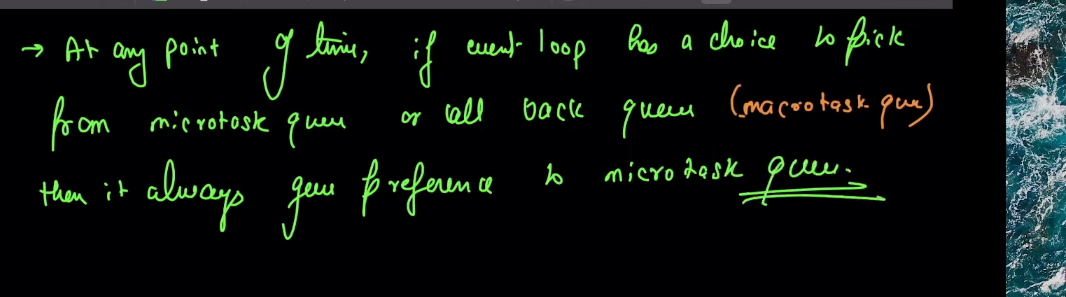 → At any point of time, if event loop has a choice to pick
from microtask queue or call back queue (macrotask que)
then it always gives preference to microtask queue.